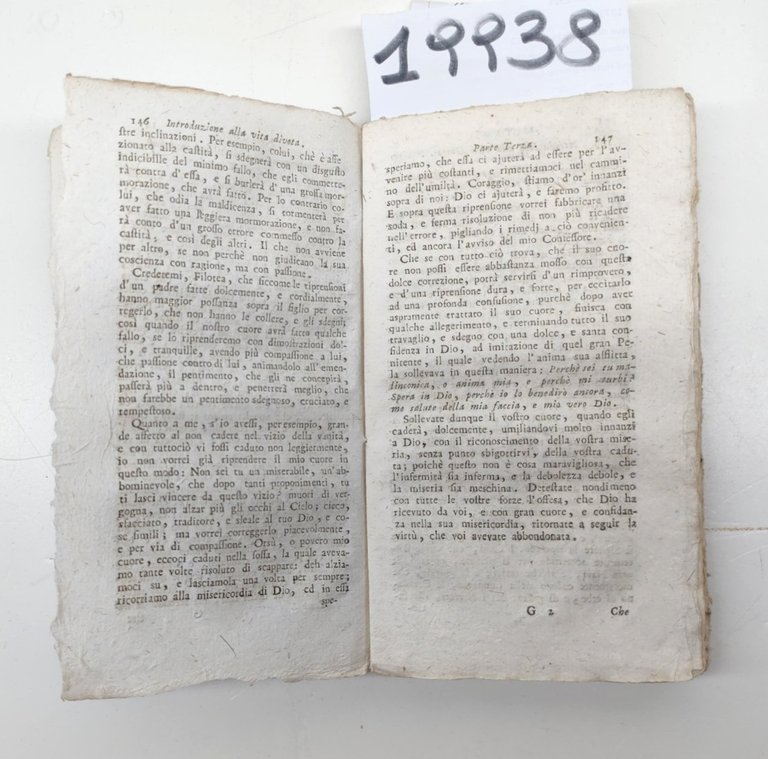 19938
146 Introduzione alla vita divota.
stre inclinazioni. Per esempio, colui, chè è affe
zionato alla castità, si sdegnerà con un disgusto
indicibile del minimo fallo, che egli commette-
rà contra d'essa, e si burlerà d'una grossa mor-
morazione, che avrà fatto. Per lo contrario co-
lui, che odia la maldicenza, si tormenterà per
aver fatto una leggiera mormorazione, e non fa-
rà conto d'un grosso errore commesso contro la
castità; e così degli altri. Il che non avviene
per altro, se non perchè non giudicano la sua
coscienza con ragione, ma con passione.
Credetemi, Filotea, che siccome le riprensioni
d'un padre fatte dolcemente, e cordialmente,
hanno maggior possanza sopra il figlio per cor-
regerlo, che non hanno le collere, e gli sdegni;
così quando il nostro cuore avrà fatto qualche
fallo, se lo riprenderemo con dimostrazioni dol-
ci, e tranquille, avendo più compassione a lui,
che passione contro di lui, animandolo all'emen-
dazione, il pentimento, che gli ne concepirà,
passerà più a dentro, e penetrerà meglio, che
non farebbe un pentimento sdegnoso, cruciato, e
tempestoso.
Quanto a me, s'io avessi, per esempio, gran-
de affetto al non cadere nel vizio della vanità,
e con tuttociò vi fossi caduto non leggiermente,
io non vorrei già riprendere il mio cuore in
questo modo: Non sei tu un miserabile, un'ab-
bominevole, che dopo tanti proponimenti, tu
ti lasci vincere da questo vizio? muori di ver-
gogna, non alzar più gli occhi al Cielo; cieco,
sfacciato, traditore, e sleale al tuo Dio, e co-
se simili; ma vorrei correggerlo piacevolmente,
e per via di compassione. Orsù, o povero mio
cuore, eccoci caduti nella fossa, la quale aveva-
mo tante volte risoluto di scappare: deh alzia-
moci su, e lasciamola una volta per sempre;
ricorriamo alla misericordia di Dio, ed in essa
spe-
Parte Terza. 147
speriamo, che essa ci ajuterà ad essere per l'av-
venire più costanti, e rimettiamoci nel cammi-
no dell'umiltà. Coraggio, stiamo d'or' innanzi
sopra di noi: Dio ci ajuterà, e faremo profitto.
E sopra questa riprensione vorrei fabbricare una
soda, e ferma risoluzione di non più ricadere
nell'errore, pigliando i rimedj a ciò convenien-
ti, ed ancora l'avviso del mio Confessore.
Che se con tutto ciò trova, che il suo cuo-
re non possi essere abbastanza mosso con questa
dolce correzione, potrà servirsi d'un rimprovero,
e d'una riprensione dura, e forte, per eccitarlo
ad una profonda confusione, purchè dopo aver
aspramente trattato il suo cuore, finisca con
qualche allegerimento, e terminando tutto il suo
travaglio, e sdegno con una dolce, e santa con-
fidenza in Dio, ad imitazione di quel gran Pe-
nitente, il quale vedendo l'anima sua afflitta,
la sollevava in questa maniera: Perchè sei tu ma-
linconica, o anima mia, e perchè mi turbi?
Spera in Dio, perchè io lo benedirò ancora, co-
me salute della mia faccia, e mio vero Dio.
Sollevate dunque il vostro cuore, quando egli
caderà, dolcemente, umiliandovi molto innanzi
a Dio, con il riconoscimento della vostra mise-
ria, senza punto sbigottirvi, della vostra cadu-
ta; poichè questo non è cosa maravigliosa, che
l'infermità sia inferma, e la debolezza debole, e
la miseria sia meschina. Detestate nondimeno
con tutte le vostre forze l'offesa, che Dio ha
ricevuto da voi, e con gran cuore, e confidan-
za nella sua misericordia, ritornate a seguir la
virtù, che voi avevate abbondonata.
G 2 Che